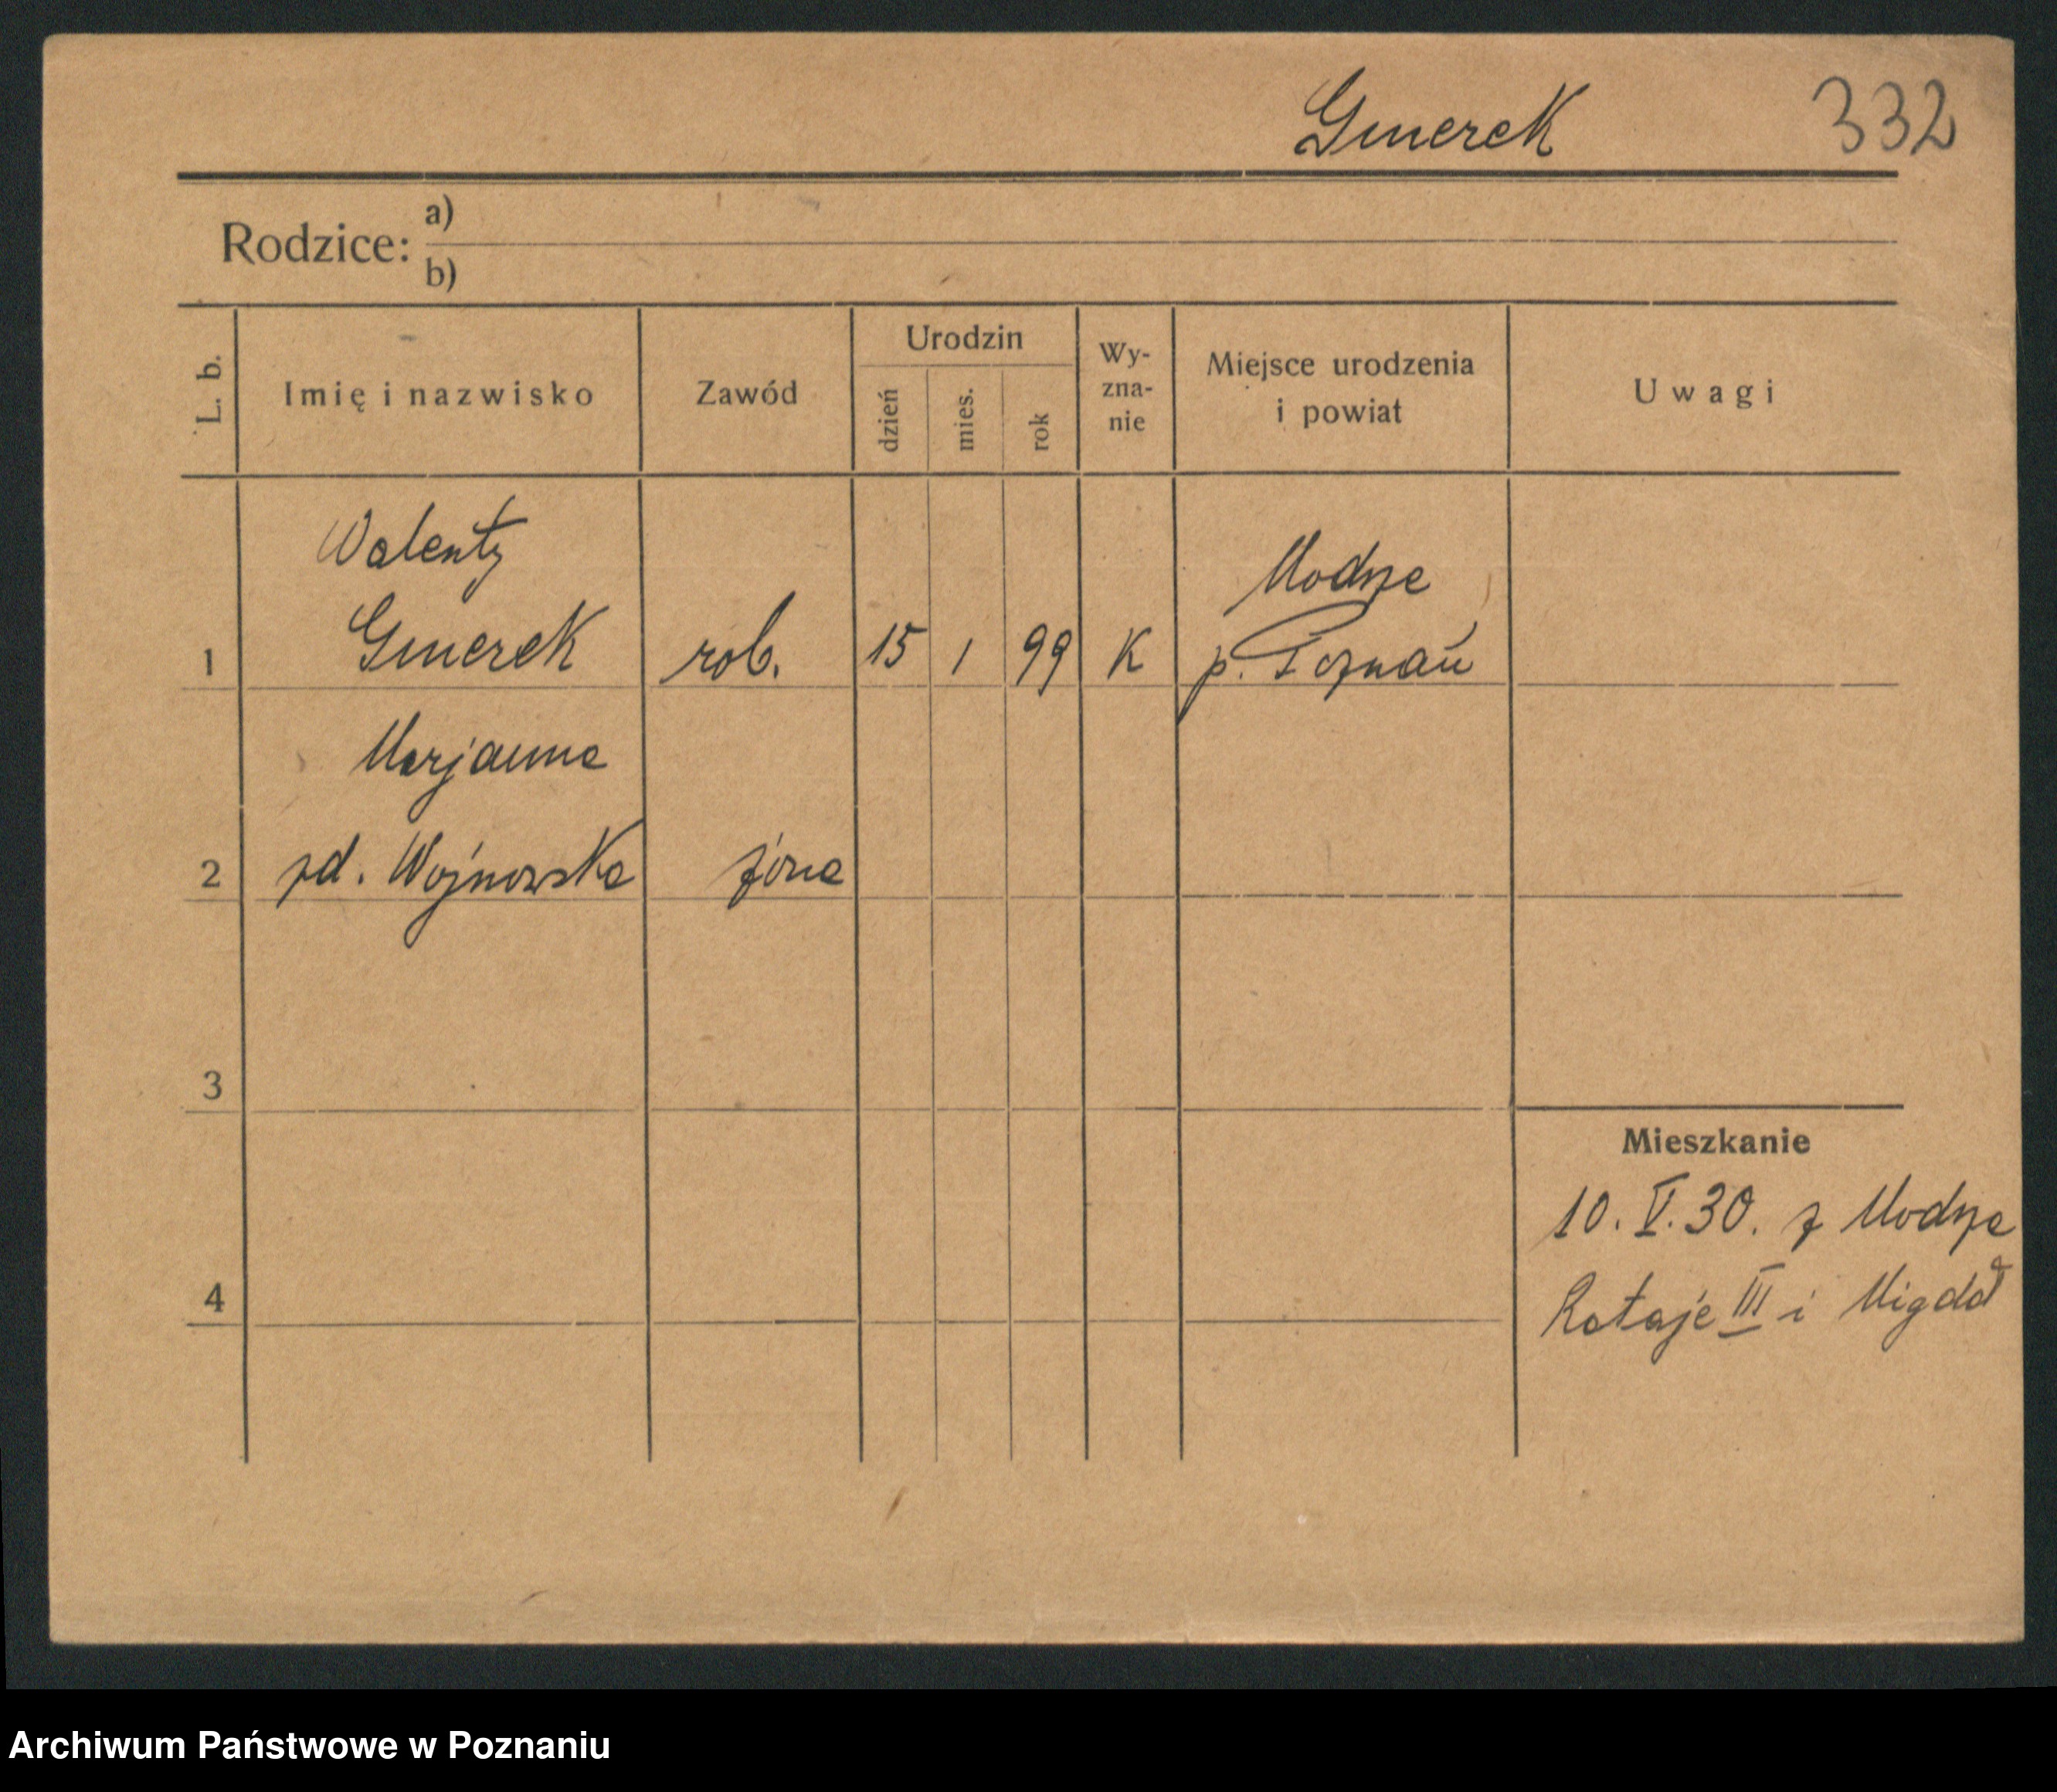 Gmerek 332
Rodzice: a)
b)
L. b. Imię i nazwisko Zawód Urodzin dzień mies. rok Wy-zna-nie Miejsce urodzenia i powiat Uwagi
Walenty Modrze
1 Gmerek rob. 15 1 99 K p. Poznań
Marjanna
2 zd. Wojnowska żona
3
Mieszkanie
10. V. 30. z Modrze
4 Rataje III i Migdał
Archiwum Państwowe w Poznaniu